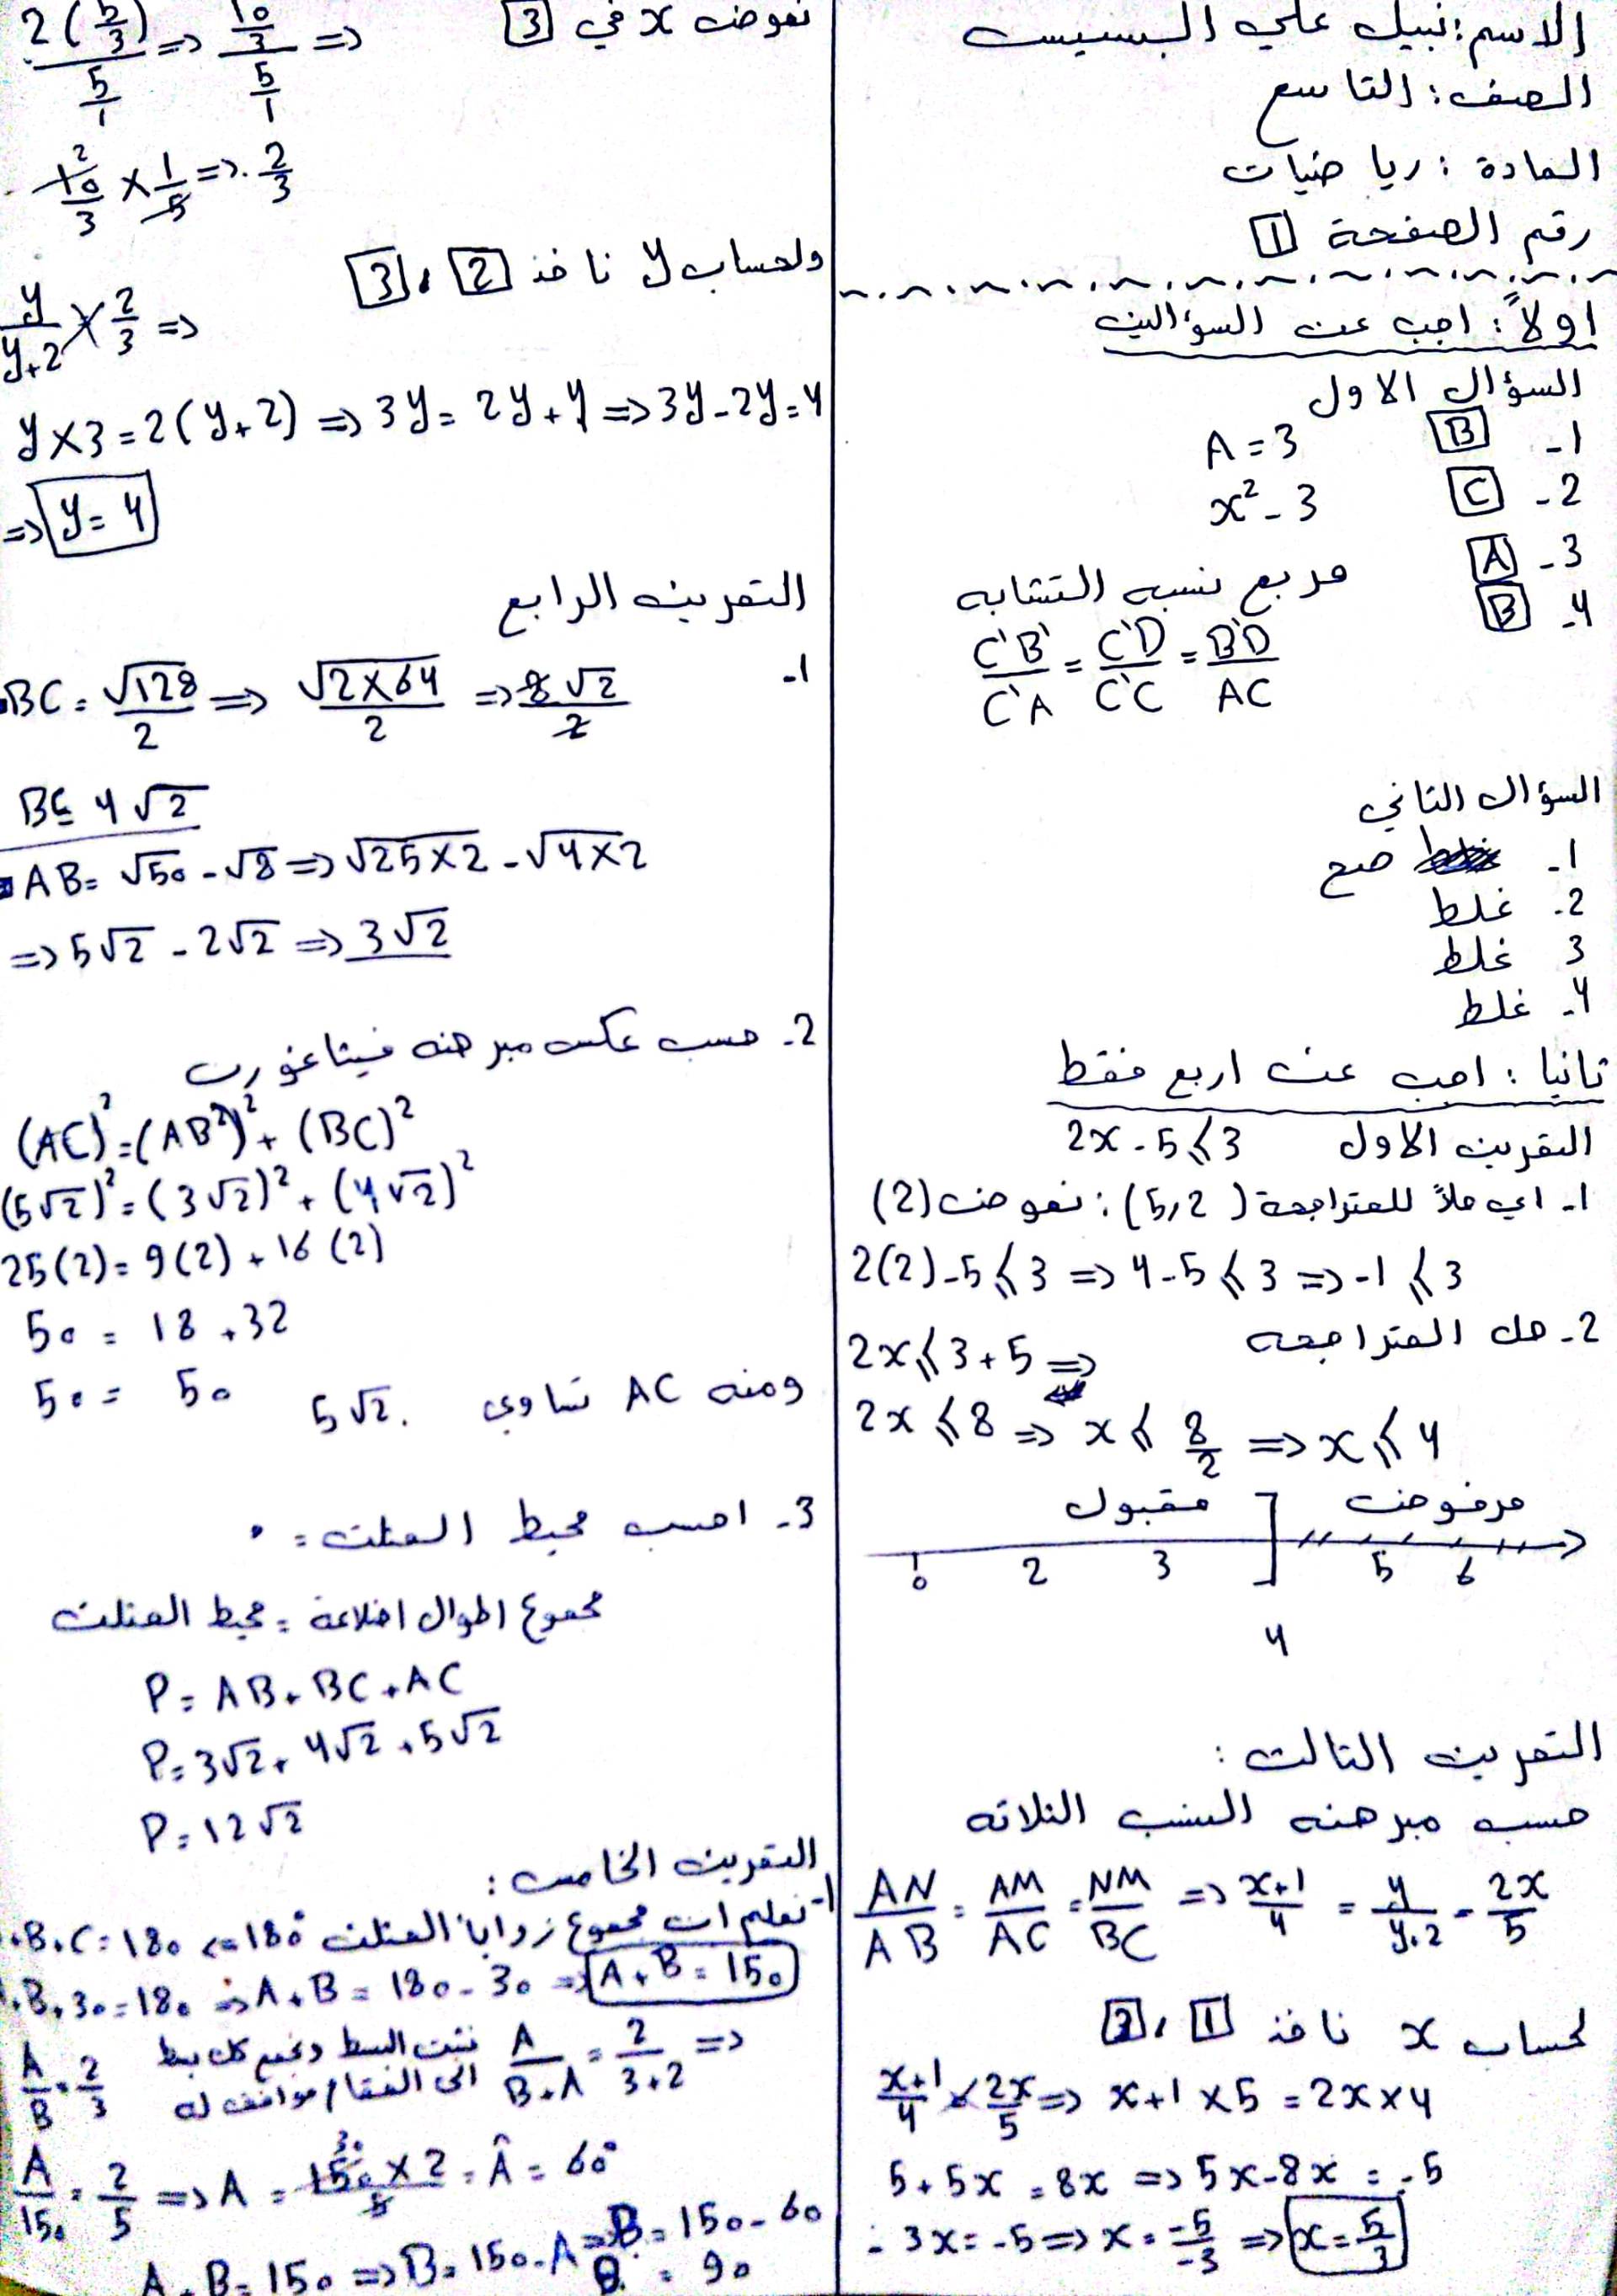 الاسم: نبيل علي البسيس
الصف: التاسع
المادة: رياضيات
رقم الصفحة 1
اولاً: اجب عن السؤالين
السؤال الاول
1- B A = 3
2- C x² - 3
3- A مربع نسبه التشابه
4- B C'B'/C'A = C'D/C'C = B'D/AC
السؤال الثاني
1- صح
2. غلط
3 غلط
4- غلط
ثانيا: اجب عن اربع فقط
التمرين الاول 2x - 5 ≤ 3
1- اي حلاً للمتراجحة (5,2): نعوض (2)
2(2) - 5 ≤ 3 => 4 - 5 ≤ 3 => -1 ≤ 3
2- حل المتراجحه
2x ≤ 3 + 5 =>
2x ≤ 8 => x ≤ 8/2 => x ≤ 4
مقبول ] مرفوض
0 2 3 5 6
4
التمرين الثالث:
حسب مبرهنه النسب الثلاثه
AN/AB = AM/AC = NM/BC => x+1/4 = y/y+2 = 2x/5
لحساب x ناخذ 1، 3
x+1/4 × 2x/5 => x+1 × 5 = 2x × 4
5 + 5x = 8x => 5x - 8x = -5
- 3x = -5 => x = -5/-3 => x = 5/3
نعوض x في 3 => 2(5/3)/(5/1) => (10/3)/(5/1) =>
10/3 × 1/5 => 2/3
ولحساب y ناخذ 2، 3
y/y+2 × 2/3 =>
y × 3 = 2(y+2) => 3y = 2y + 4 => 3y - 2y = 4
=> y = 4
التمرين الرابع
1- BC = √128/2 => √2×64/2 => 8√2/2
BC = 4√2
AB = √50 - √8 => √25×2 - √4×2
=> 5√2 - 2√2 => 3√2
2- حسب عكس مبرهنه فيثاغورث
(AC)² = (AB²)² + (BC)²
(5√2)² = (3√2)² + (4√2)²
25(2) = 9(2) + 16(2)
50 = 18 + 32
50 = 50 ومنه AC تساوي 5√2.
3- احسب محيط المثلث =
مجموع اطوال اضلاعة = محيط المثلث
P = AB + BC + AC
P = 3√2 + 4√2 + 5√2
P = 12√2
التمرين الخامس:
1- نعلم ان مجموع زوايا المثلث 180° <= 180 = B + C +
+ B + 30 = 180 => A + B = 180 - 30 => A + B = 150
A/B = 2/3 نثبت البسط ونجمع كل بسط الى المقام موافق له A/B+A = 2/3+2 =>
A/150 = 2/5 => A = 150×2/5 = Â = 60°
A + B = 150 => B = 150 - A => B = 150 - 60
B = 90